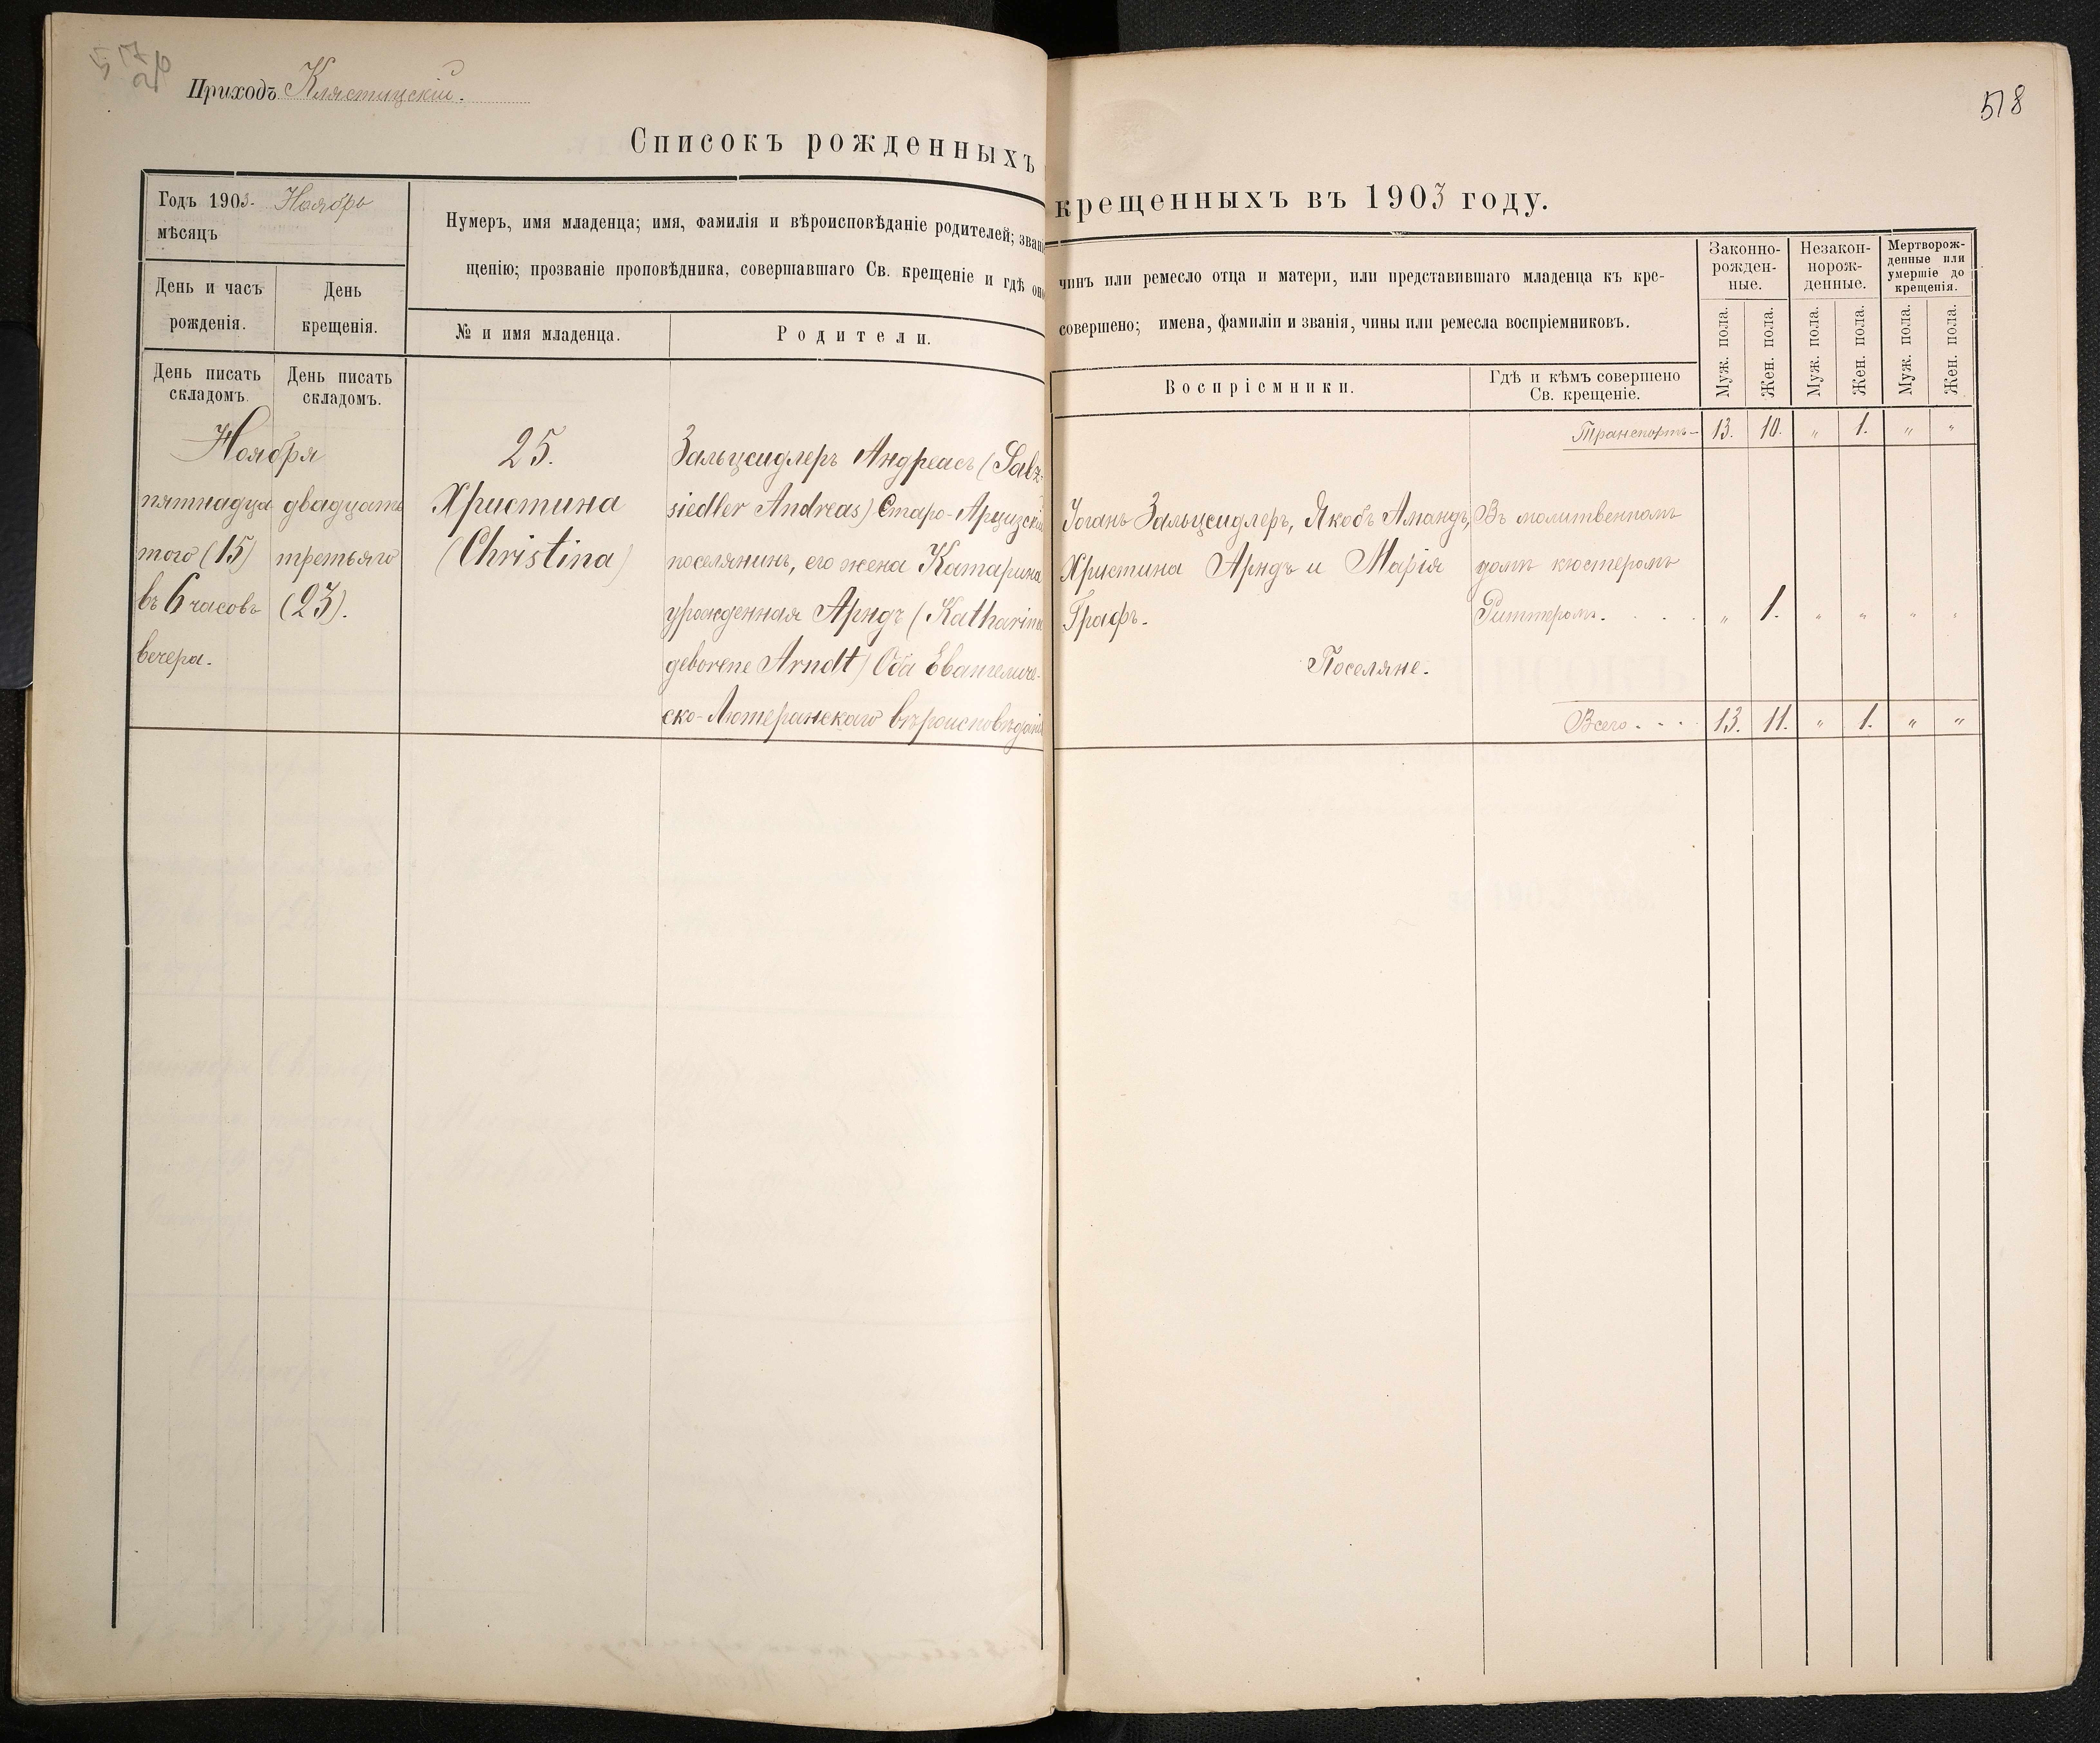 517
26
Приходъ Клястицскій.
518
Списокъ рожденныхъ
крещенныхъ въ 1903 году.
Годъ 1903. Ноябрь
мѣсяцъ
День и часъ
рожденія.
День
крещенія.
Нумеръ, имя младенца; имя, фамилія и вѣроисповѣданіе родителей; зван
щенію; прозваніе проповѣдника, совершавшаго Св. крещеніе и гдѣ оно
№ и имя младенца.
Родители.
чинъ или ремесло отца и матери, или представившаго младенца къ кре-
совершено; имена, фамиліи и званія, чины или ремесла воспріемниковъ.
Воспріемники.
Гдѣ и кѣмъ совершено
Св. крещеніе.
Законно-
рожден-
ные.
Незакон-
норож-
денные.
Мертворож-
денные или
умершіе до
крещенія.
Муж. пола.
Жен. пола.
Муж. пола.
Жен. пола.
Муж. пола.
Жен. пола.
День писать
складомъ.
День писать
складомъ.
Транспортъ- 13. 10. " 1. " "
Ноября
пятнадца
того (15)
въ 6 часовъ
вечера.
двадцать
третьяго
(23).
25.
Христина
(Christina)
Зальцсидлеръ Андреасъ (Salz-
siedler Andreas) Старо-Арцизскій
поселянинъ, его жена Катарина
урожденная Арндъ (Katharina
geborene Arndt) Оба Евангеличе-
ско-Лютеранскаго вѣроисповѣданія
Іоганъ Зальцсидлеръ, Якобъ Амандъ,
Христина Арндъ и Марія
Графъ.
Поселяне.
Въ молитвенномъ
домѣ кюстеромъ
Риттромъ. . . . " 1. " " " "
Всего . . . 13. 11. " 1. " "